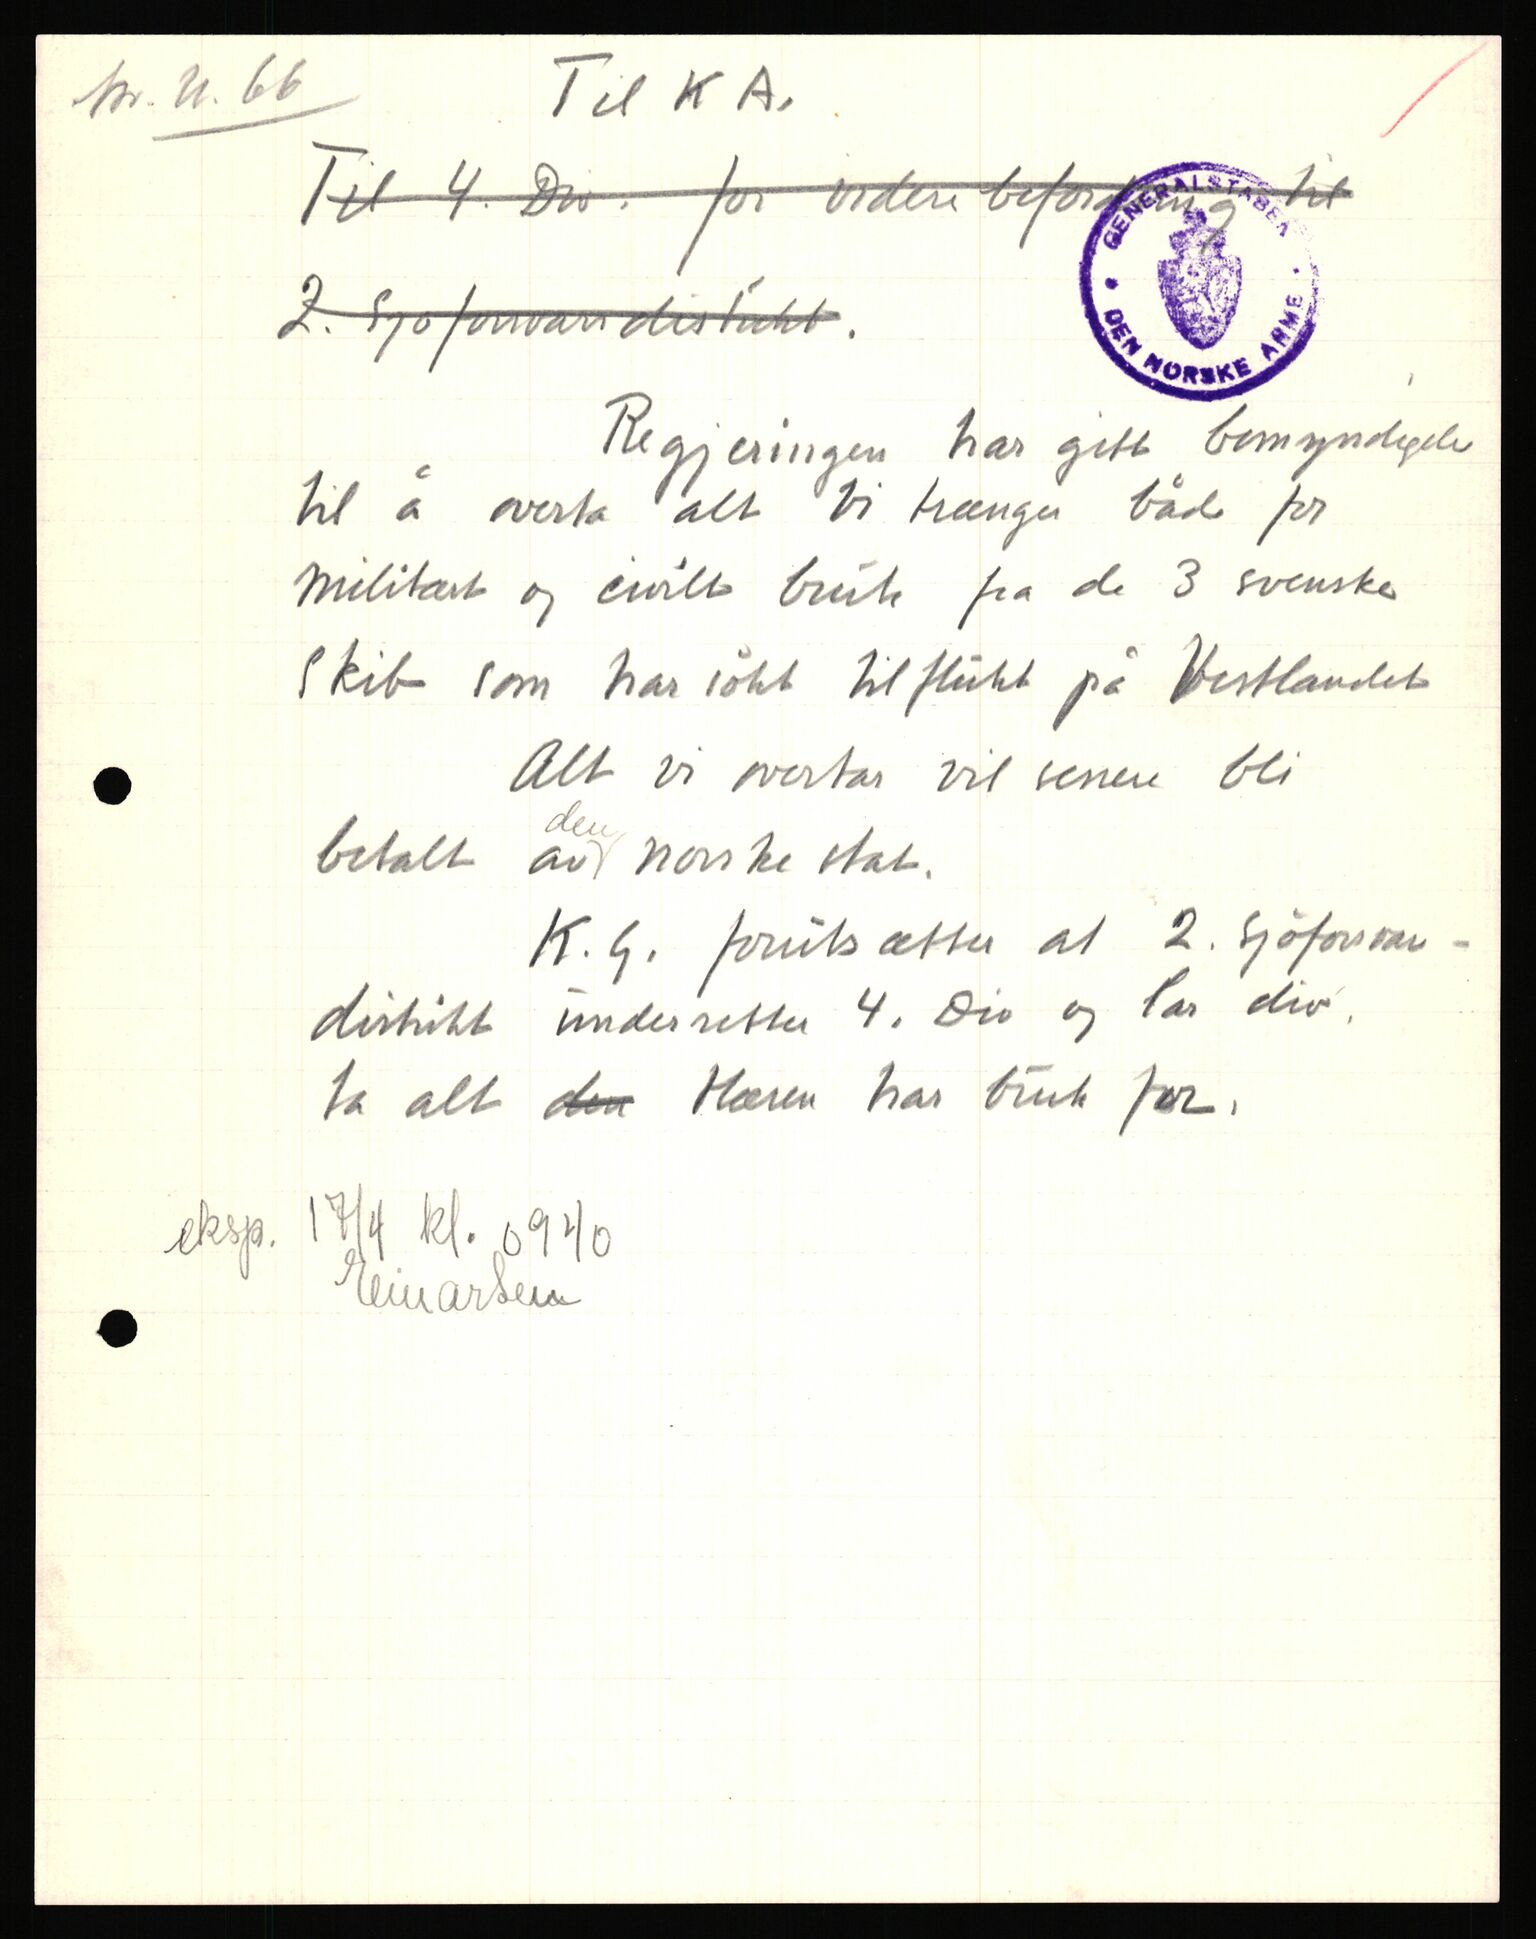 Nr. U. 66
Til K A.
Til 4. Div. for videre befordring til
2. Sjøforsvarsdistrikt.
GENERALSTABEN
DEN NORSKE ARME
Regjeringen har gitt bemyndigelse
til å overta alt vi trænger både for
militært og civilt bruk fra de 3 svenske
skib som har søkt tilflukt på Vestlandet
Alt vi overtar vil senere bli
betalt av den norske stat.
K.G. forutsætter at 2. Sjøforsvars-
distrikt underretter 4. Div og lar div.
ta alt den Hæren har bruk for.
eksp. 17/4 kl. 0940
Einarsen